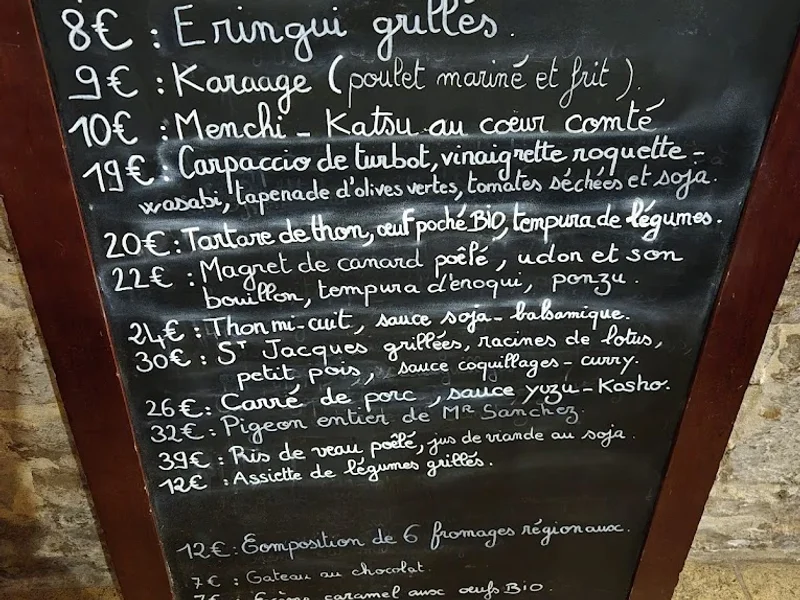 8€ : Eringui grillés.
9€ : Karaage (poulet mariné et frit).
10€ : Menchi - Katsu au cœur comté
19€ : Carpaccio de turbot, vinaigrette roquette -
wasabi, tapenade d'olives vertes, tomates séchées et soja.
20€ : Tartare de thon, œuf poché BIO, tempura de légumes.
22€ : Magret de canard poêlé, udon et son
bouillon, tempura d'enoqui, ponzu.
24€ : Thon mi-cuit, sauce soja - balsamique.
30€ : St Jacques grillées, racines de lotus,
petit pois, sauce coquillages - curry.
26€ : Carré de porc, sauce yuzu - Kosho.
32€ : Pigeon entier de Mr Sanchez.
39€ : Ris de veau poêlé, jus de viande au soja.
12€ : Assiette de légumes grillés.
12€ : Composition de 6 fromages régionaux.
7€ : Gateau au chocolat.
7€ : Crème caramel aux œufs BIO.